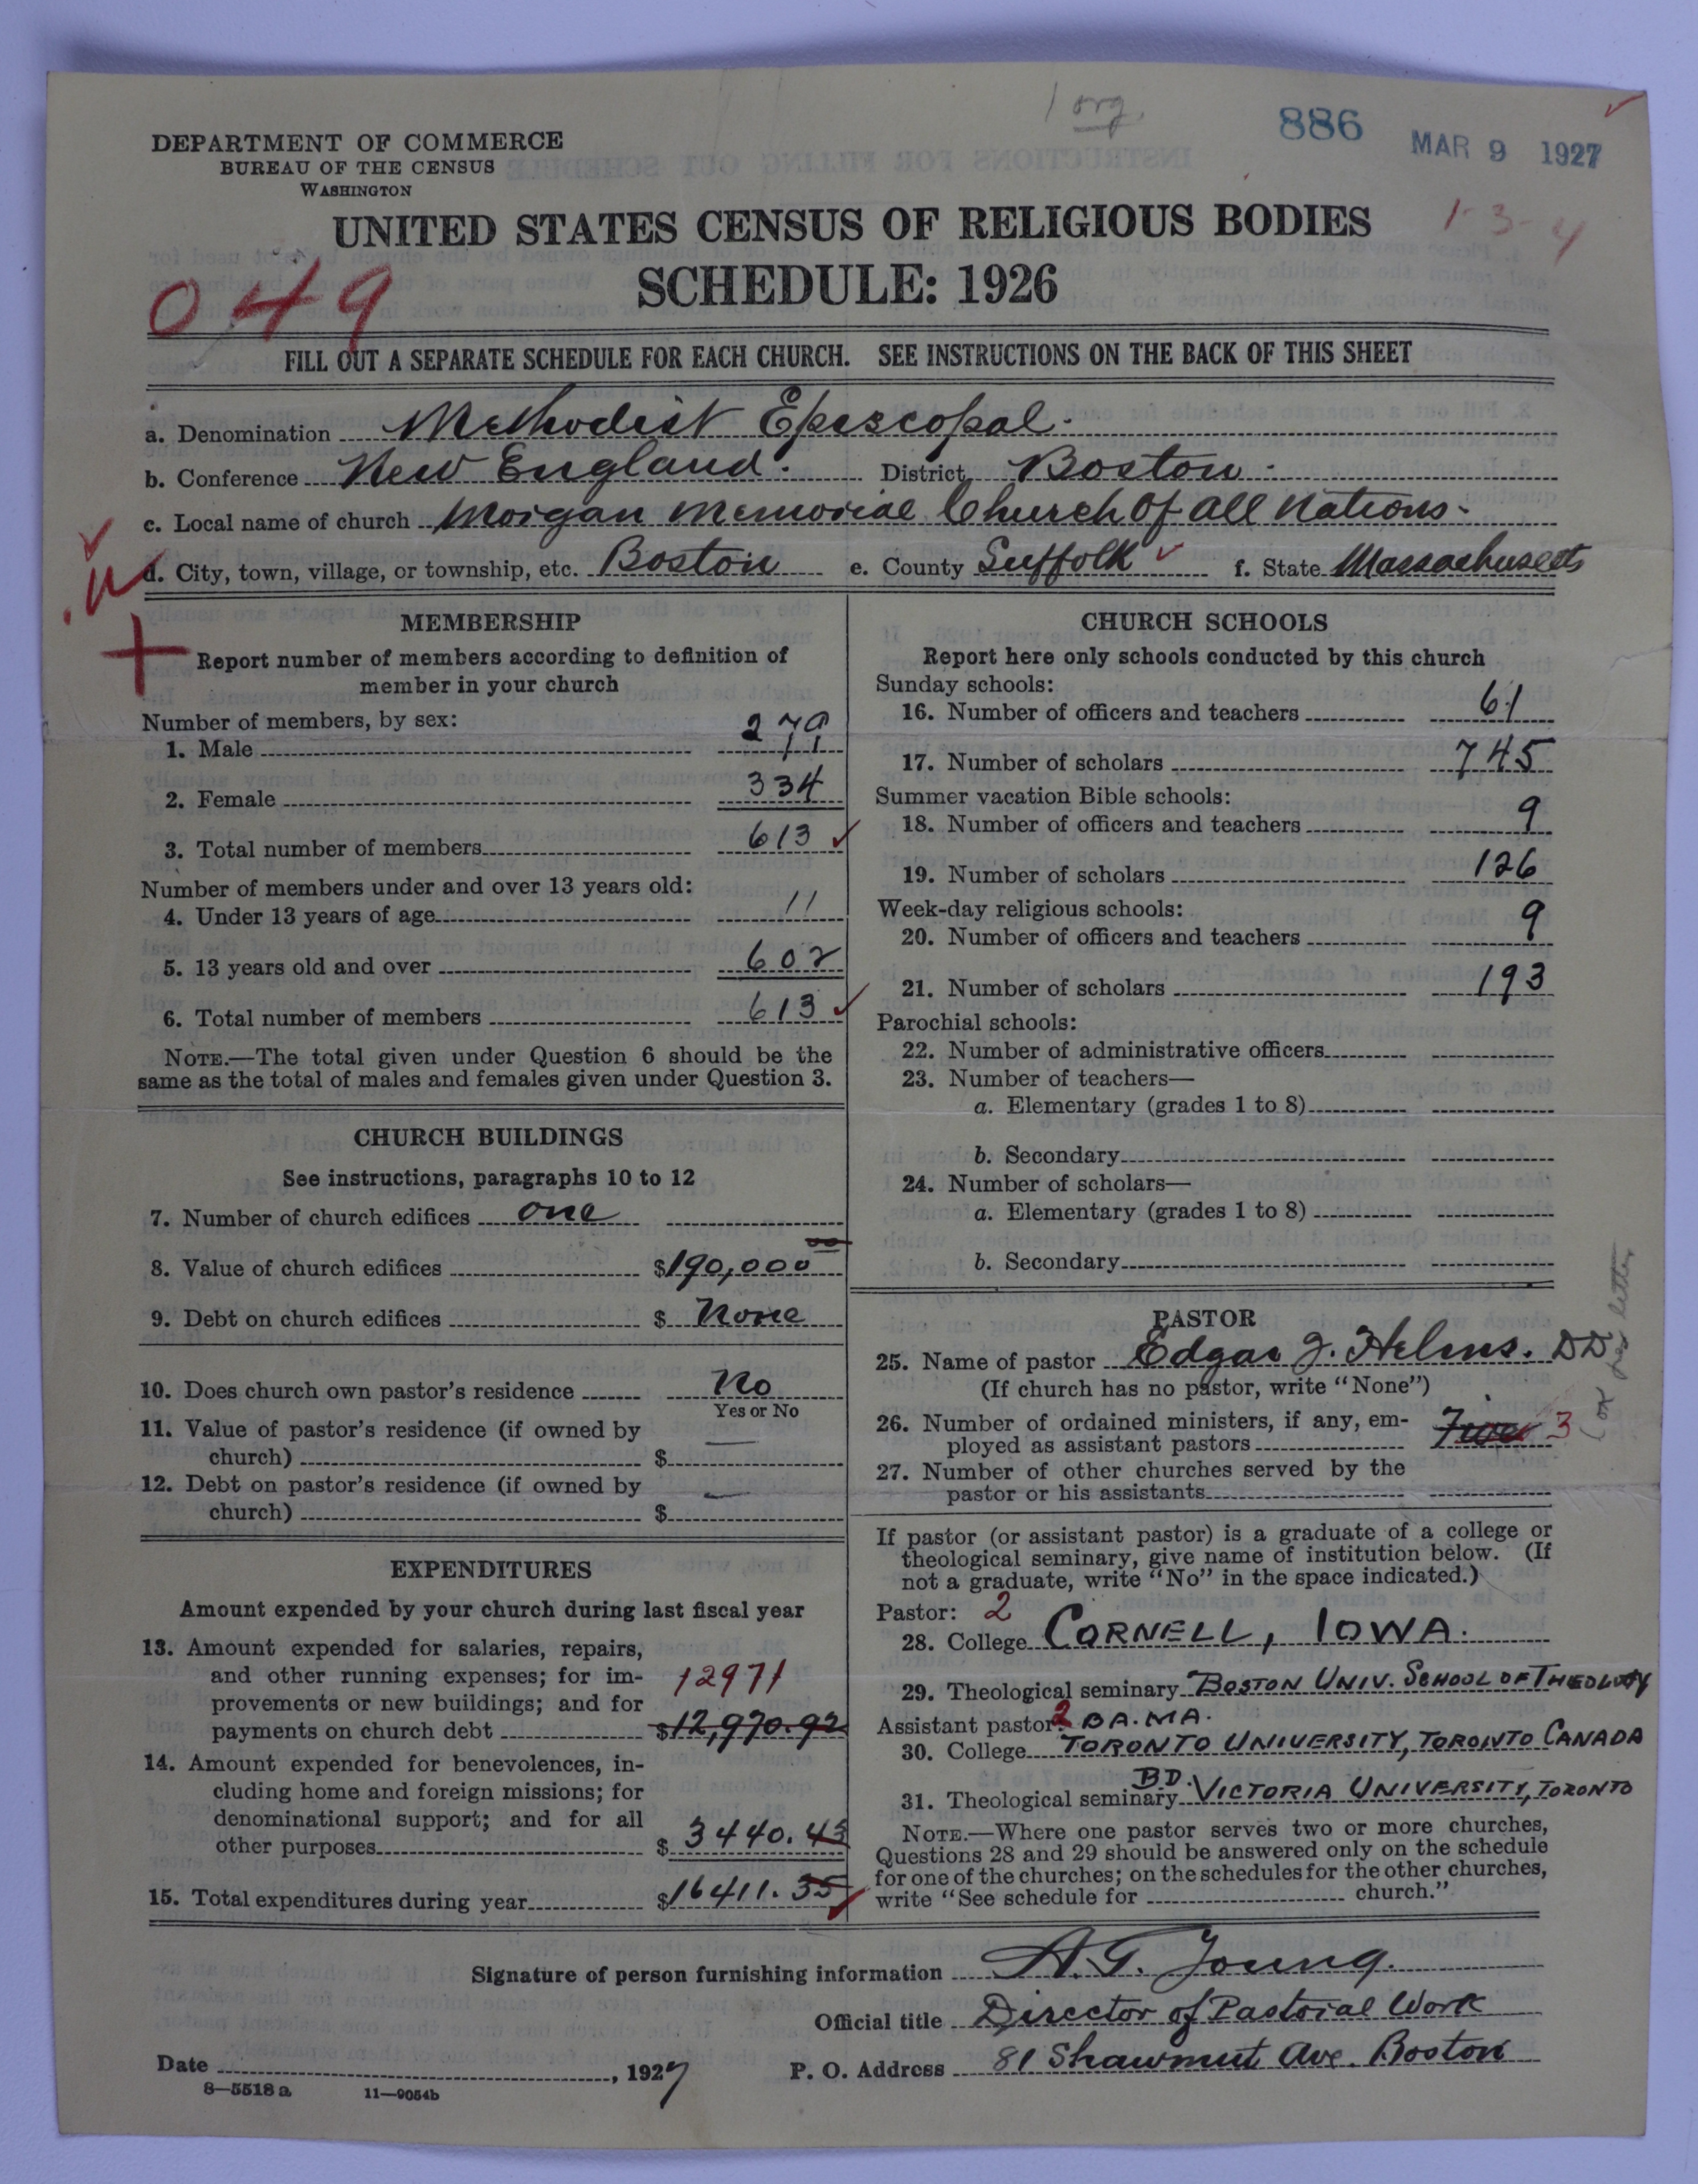 1 org.
886 MAR 9 1927
DEPARTMENT OF COMMERCE
BUREAU OF THE CENSUS
WASHINGTON
UNITED STATES CENSUS OF RELIGIOUS BODIES
1-3-4
SCHEDULE: 1926
049
FILL OUT A SEPARATE SCHEDULE FOR EACH CHURCH. SEE INSTRUCTIONS ON THE BACK OF THIS SHEET
a. Denomination Methodist Episcopal.
b. Conference New England. District Boston.
c. Local name of church Morgan Memorial Church of all Nations.
d. City, town, village, or township, etc. Boston e. County Suffolk f. State Massachusetts
MEMBERSHIP
Report number of members according to definition of
member in your church
Number of members, by sex:
1. Male 279
2. Female 334
3. Total number of members 613
Number of members under and over 13 years old:
4. Under 13 years of age 11
5. 13 years old and over 602
6. Total number of members 613
NOTE.—The total given under Question 6 should be the
same as the total of males and females given under Question 3.
CHURCH BUILDINGS
See instructions, paragraphs 10 to 12
7. Number of church edifices one
8. Value of church edifices $190,000 00
9. Debt on church edifices $ None
10. Does church own pastor's residence No
Yes or No
11. Value of pastor's residence (if owned by
church) $ —
12. Debt on pastor's residence (if owned by
church) $ —
EXPENDITURES
Amount expended by your church during last fiscal year
13. Amount expended for salaries, repairs,
and other running expenses; for im-
provements or new buildings; and for 12971
payments on church debt $12,970.92
14. Amount expended for benevolences, in-
cluding home and foreign missions; for
denominational support; and for all
other purposes $ 3440.43
15. Total expenditures during year $16411.35
CHURCH SCHOOLS
Report here only schools conducted by this church
Sunday schools:
16. Number of officers and teachers 61
17. Number of scholars 745
Summer vacation Bible schools:
18. Number of officers and teachers 9
19. Number of scholars 126
Week-day religious schools:
20. Number of officers and teachers 9
21. Number of scholars 193
Parochial schools:
22. Number of administrative officers
23. Number of teachers—
a. Elementary (grades 1 to 8)
b. Secondary
24. Number of scholars—
a. Elementary (grades 1 to 8)
b. Secondary
PASTOR
25. Name of pastor Edgar J. Helms. DD
(If church has no pastor, write "None")
26. Number of ordained ministers, if any, em-
ployed as assistant pastors Five 3
per letter
27. Number of other churches served by the
pastor or his assistants
If pastor (or assistant pastor) is a graduate of a college or
theological seminary, give name of institution below. (If
not a graduate, write "No" in the space indicated.)
Pastor: 2
28. College CORNELL, IOWA.
29. Theological seminary BOSTON UNIV. SCHOOL OF THEOLOGY
Assistant pastor: 2 BA. MA.
30. College TORONTO UNIVERSITY, TORONTO CANADA
B.D.
31. Theological seminary VICTORIA UNIVERSITY, TORONTO
NOTE.—Where one pastor serves two or more churches,
Questions 28 and 29 should be answered only on the schedule
for one of the churches; on the schedules for the other churches,
write "See schedule for church."
Signature of person furnishing information A. G. Young.
Official title Director of Pastoral Work
Date , 1927 P. O. Address 81 Shawmut Ave. Boston
8—5518 a 11—9054b